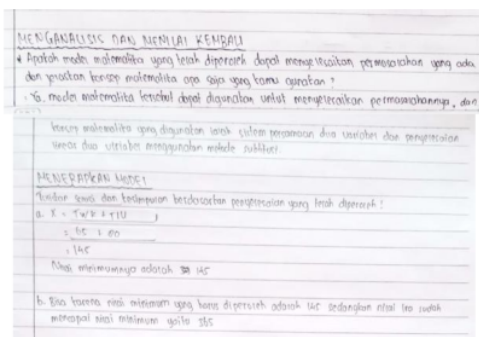 MENGANALISIS DAN MENILAI KEMBALI
* Apakah model matematika yang telah diperoleh dapat menyelesaikan permasalahan yang ada
dan jelaskan konsep matematika apa saja yang kamu gunakan ?
- Ya, model matematika tersebut dapat digunakan untuk menyelesaikan permasalahannya, dan
konsep matematika yang digunakan ialah sistem persamaan dua variabel dan penyelesaian
linear dua variabel menggunakan metode subtitusi
MENERAPKAN MODEL
dan kesimpulan berdasarkan penyelesaian yang telah diperoleh :
a. X = TWK + TIU
= 65 + 80
= 145
Nilai minimumnya adalah 145
b. Bisa karena nilai minimum yang harus diperoleh adalah sedangkan nilai sudah
mencapai nilai minimum yaitu